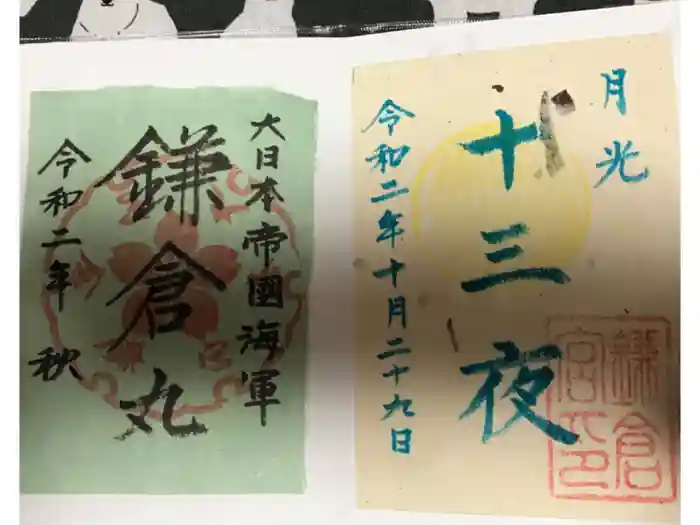 月光
十三夜
令和二年十月二十九日
鎌倉宮印
大日本帝國海軍
鎌倉丸
令和二年 秋